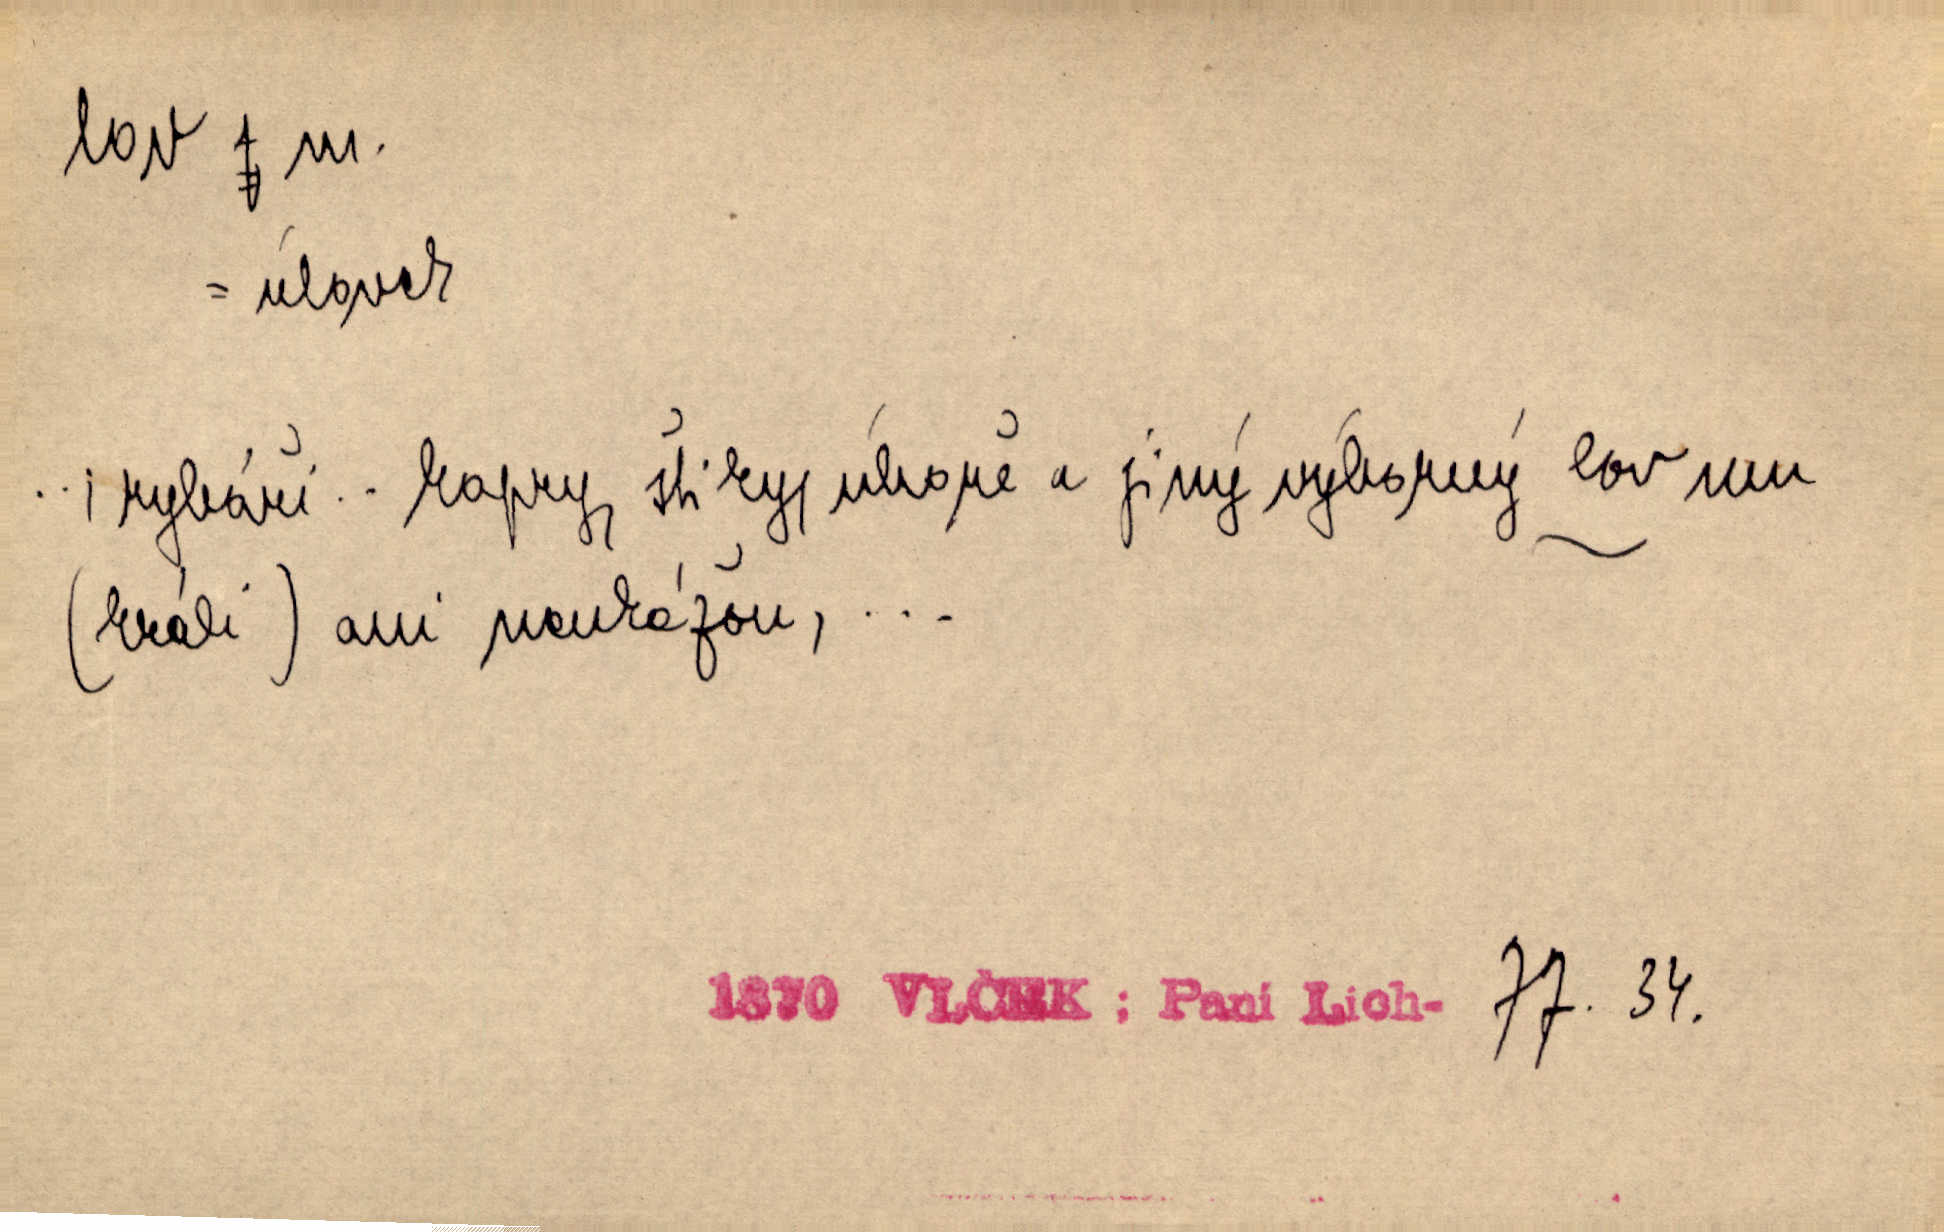 lov m.
= úlovek
.. i rybáři .. kapry, štiky, úhoře a jiný výborný lov mu
(králi) ani neukážou, ...
1870 VLČEK ; Paní Lich- 77. 34.